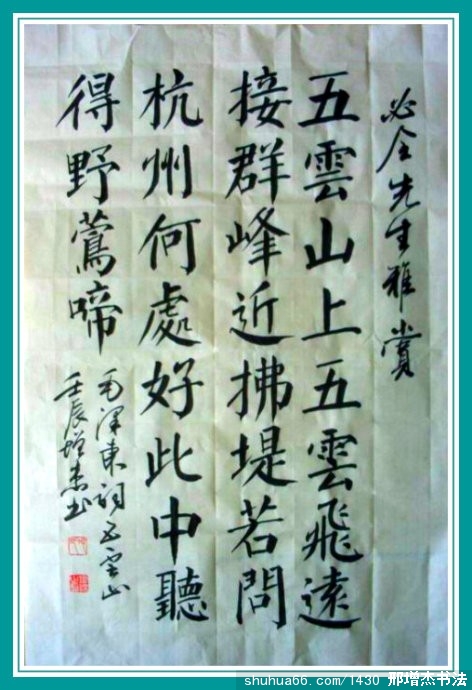 必全先生雅赏
五雲山上五雲飛遠
接群峰近拂堤若問
杭州何處好此中聽
得野鶯啼
毛泽東詞五雲山
壬辰增杰书
shuhua66.com/1430 邢增杰书法